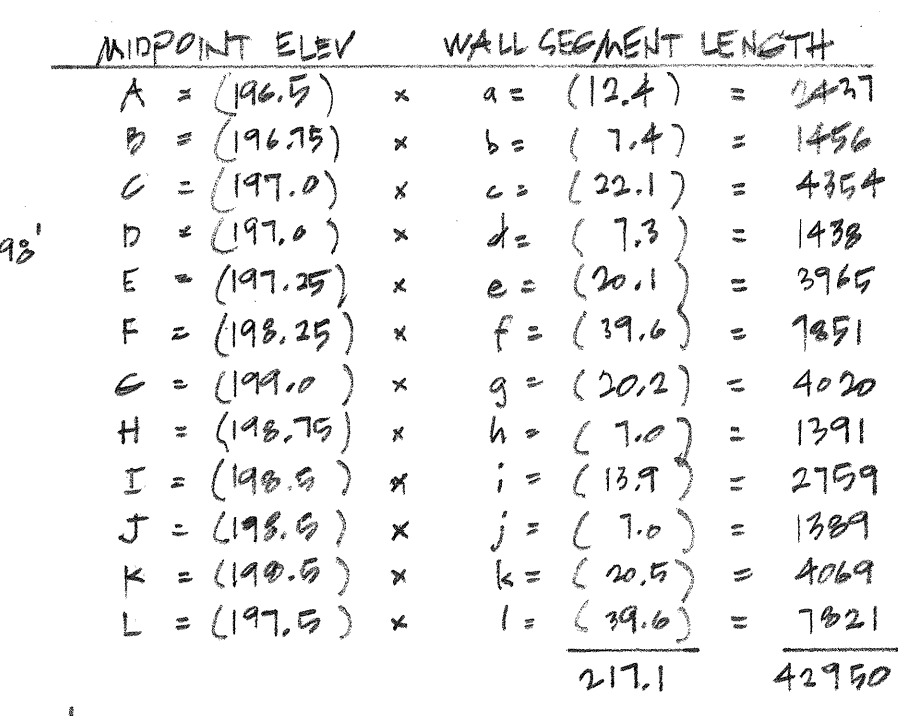 MIDPOINT ELEV WALL SEGMENT LENGTH
A = (196.5) x a = (12.4) = 2437
B = (196.75) x b = (7.4) = 1456
C = (197.0) x c = (22.1) = 4354
D = (197.0) x d = (7.3) = 1438
98'
E = (197.25) x e = (20.1) = 3965
F = (198.25) x f = (39.6) = 7851
G = (199.0) x g = (20.2) = 4020
H = (198.75) x h = (7.0) = 1391
I = (198.5) x i = (13.9) = 2759
J = (198.5) x j = (7.0) = 1389
K = (198.5) x k = (20.5) = 4069
L = (197.5) x l = (39.6) = 7821
217.1 42950